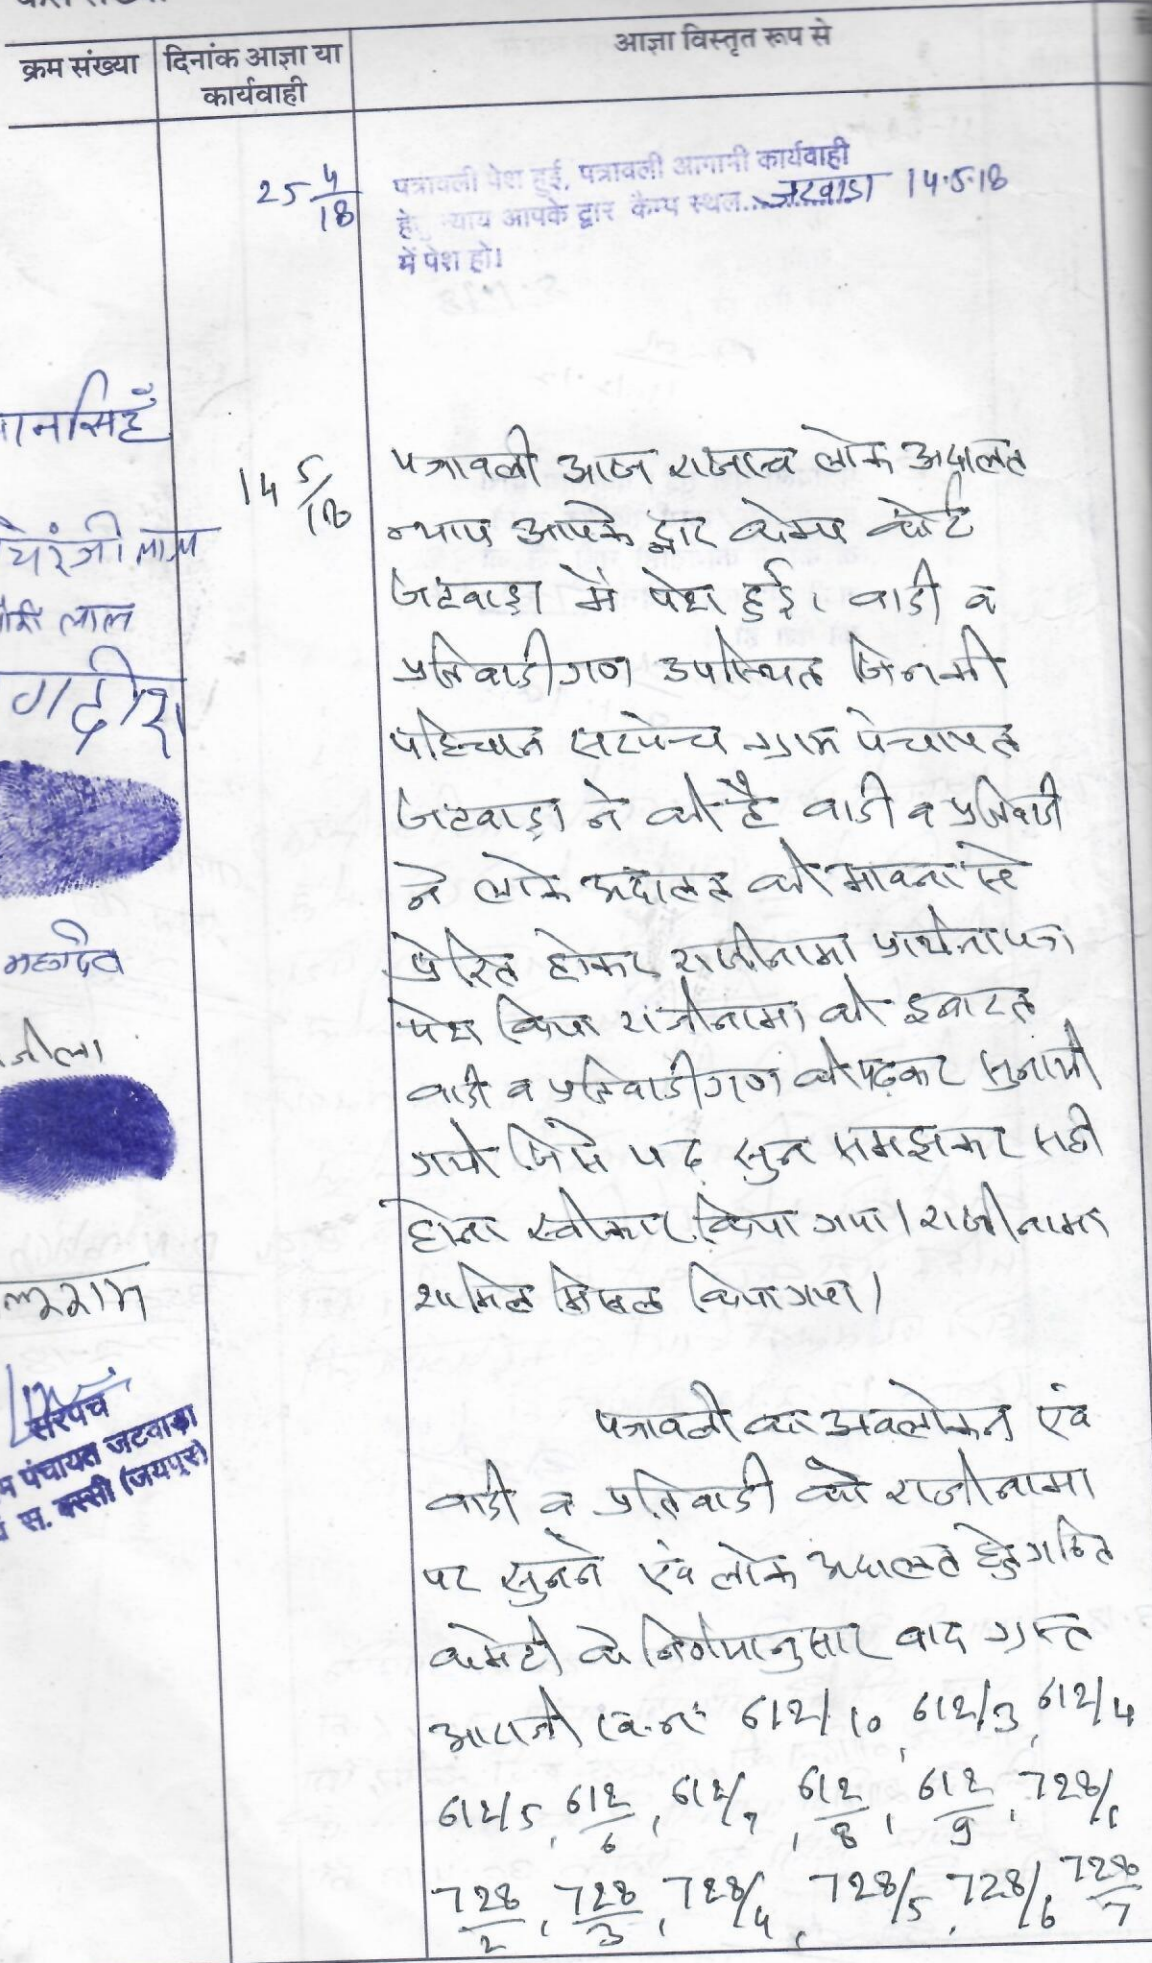 क्रम संख्या
दिनांक आज्ञा या
कार्यवाही
आज्ञा विस्तृत रूप से
25 4/18
पत्रावली पेश हुई, पत्रावली आगामी कार्यवाही
न्याय आपके द्वार कैम्प स्थल जटवाडा 14.5.18
में पेश हो।
14 5/18
पत्रावली आज राजस्व लोक अदालत
न्याय आपके द्वार केम्प कोर्ट
जटवाड़ा में पेश हुई। वादी व
प्रतिवादीगण उपस्थित जिनकी
पहिचान सरपंच ग्राम पंचायत
जटवाड़ा ने की है वादी व प्रतिवादी
ने लोक अदालत की भावना से
प्रेरित होकर राजीनामा प्रार्थनापत्र
पेश किया राजीनामा की इबारत
वादी व प्रतिवादीगण को पढ़कर सुनायी
गयी जिसे पढ़ सुन समझकर सही
होना स्वीकार किया गया। राजीनामा
शामिल मिसल किया गया।
पत्रावली का अवलोकन एवं
वादी व प्रतिवादी को राजीनामा
पर सुनने एवं लोक अदालत हेतु गठित
कमेटी के निर्णयानुसार वाद ग्रस्त
आराजी ख.नं. 612/10, 612/3, 612/4
612/5, 612/6, 612/7, 612/8, 612/9, 728/1
728/2, 728/3, 728/4, 728/5, 728/6, 728/7
मानसिंह
चिरंजी लाल
लाल
गदीश
महादेव
लूराम
सरपंच
म पंचायत जटवाडा
स. बस्सी (जयपुर)